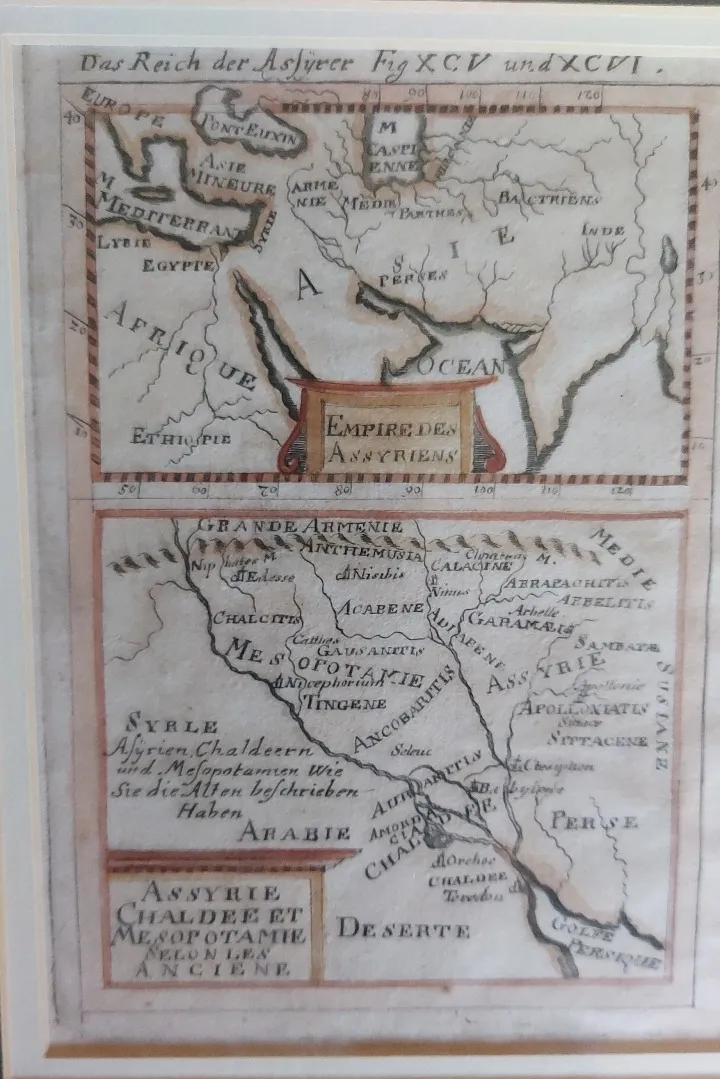 Das Reich der Assÿrer Fig XCV und XCVI.
80 90 100 110 120
40
EUROPE
PONT EUXIN
M
CASPI
ENNE
ASIE
MINEURE
ARME
NIE
MEDIE
PARTHES
BACTRIENS
M
MEDITERRANE
SYRIE
INDE
40
30
LYBIE
EGYPTE
A S I E
PERSES
30
20
AFRIQUE
OCEAN
20
10
ETHIOPIE
EMPIRE DES
ASSYRIENS
10
50 60 70 80 90 100 110 120
GRANDE ARMENIE
ANTHEMUSIA
MEDIE
Niphates M.
Edesse
Nisibis
M.
CALACINE
Ninus
ARRAPACHITIS
ARBELITIS
Arbelle
CHALCITIS
ACABENE
ADIABENE
GARAMÆIS
GAUSANITIS
SAMBATÆ
MESOPOTAMIE
ASSYRIE
SUSIANE
Nicephorium
TINGENE
Apollonie
APOLLONIATIS
SITTACENE
ANCOBARITIS
SYRLE
Asÿrien, Chaldeern
und Mesopotamien Wie
Sie die Alten beschrieben
Haben
Seleuc
Ctesyphon
AURANITIS
Babylone
ARABIE
CHALDEE
PERSE
Orchoe
CHALDEE
Teredon
ASSYRIE
CHALDEE ET
MESOPOTAMIE
SELON LES
ANCIENE
DESERTE
GOLFE
PERSIQUE